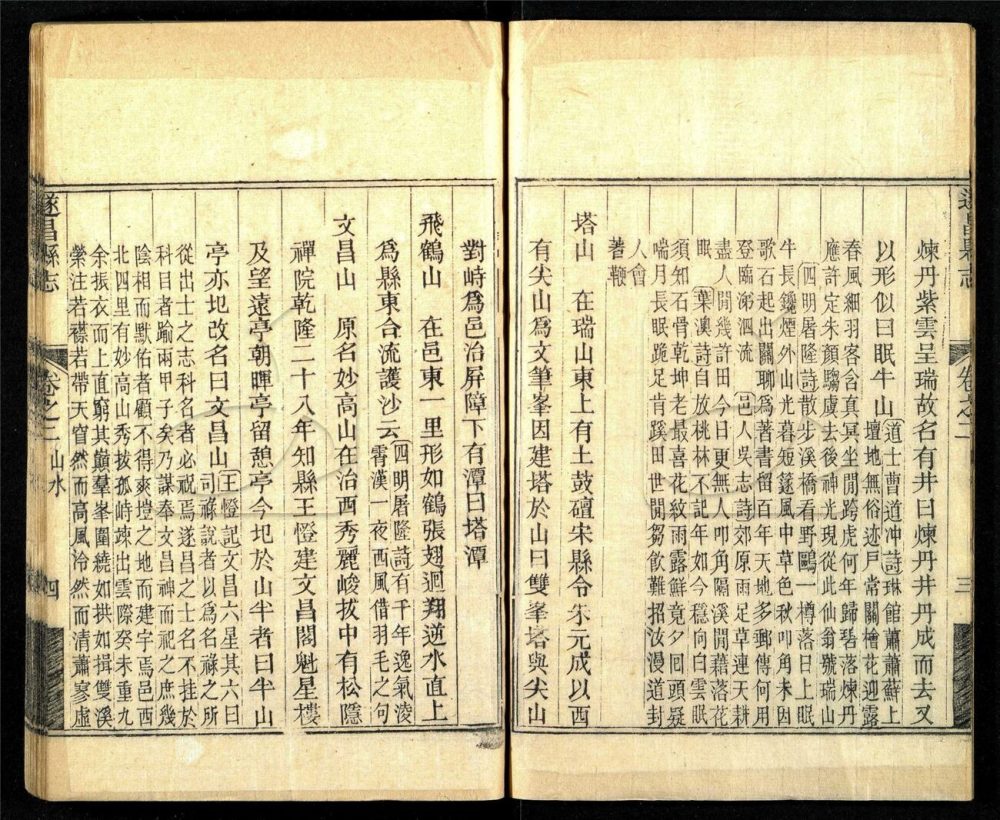 遂昌縣志
卷之二
三
煉丹紫雲呈瑞故名有井曰煉丹井丹成而去又
以形似曰眠牛山道士曹道冲詩琳館蕭蕭蘚上
壇地無俗迹戸常關檜花迎露
春風細羽客含真冥坐閒跨虎何年歸碧落煉丹
應許定朱顏驂虞去後神光現從此仙翁號瑞山
四明屠隆詩散步溪橋看野鷗一樽落日上眠
牛長鑱煙外山光暮短篴風中草色秋叩角未因
歌石起出關聊為著書留百年天地多郵傳何用
登臨涕泗流
邑人吳志詩郊原雨足草連天耕
盡人閒幾許田今日更無人叩角隔溪閒藉落花
眠
葉澳詩自放桃林不記年如今穩向白雲眠
須知石骨乾坤老最喜花紋雨露鮮竟夕回頭疑
喘月長眠跪足肯蹊田世閒芻飲難招汝漫道封
人會
著鞭
塔山 在瑞山東上有土鼓壇宋縣令朱元成以西
有尖山為文筆峯因建塔於山曰雙峯塔與尖山
對峙爲邑治屏障下有潭曰塔潭
飛鶴山 在邑東一里形如鶴張翅迴翔逆水直上
爲縣東合流護沙云四明屠隆詩有千年逸氣淩
霄漢一夜西風借羽毛之句
文昌山 原名妙高山在治西秀麗峻拔中有松隱
禪院乾隆二十八年知縣王憕建文昌閣魁星樓
及望遠亭朝暉亭留憩亭今圮於山半者曰半山
亭亦圮改名曰文昌山王憕記文昌六星其六曰
司祿說者以為名祿之所
從出士之志科名者必祝焉遂昌之士名不挂於
科目者踰兩甲子矣乃謀奉文昌神而祀之庶幾
陰相而默佑者顧不得爽塏之地而建宇焉邑西
北四里有妙高山秀拔孤峙竦出雲際癸未重九
余振衣而上直窮其巔羣峯圍繞如拱如揖雙溪
縈注若襟若帶天窅然而高風泠然而清蕭寥虛
遂昌縣志
卷之二 山水
四